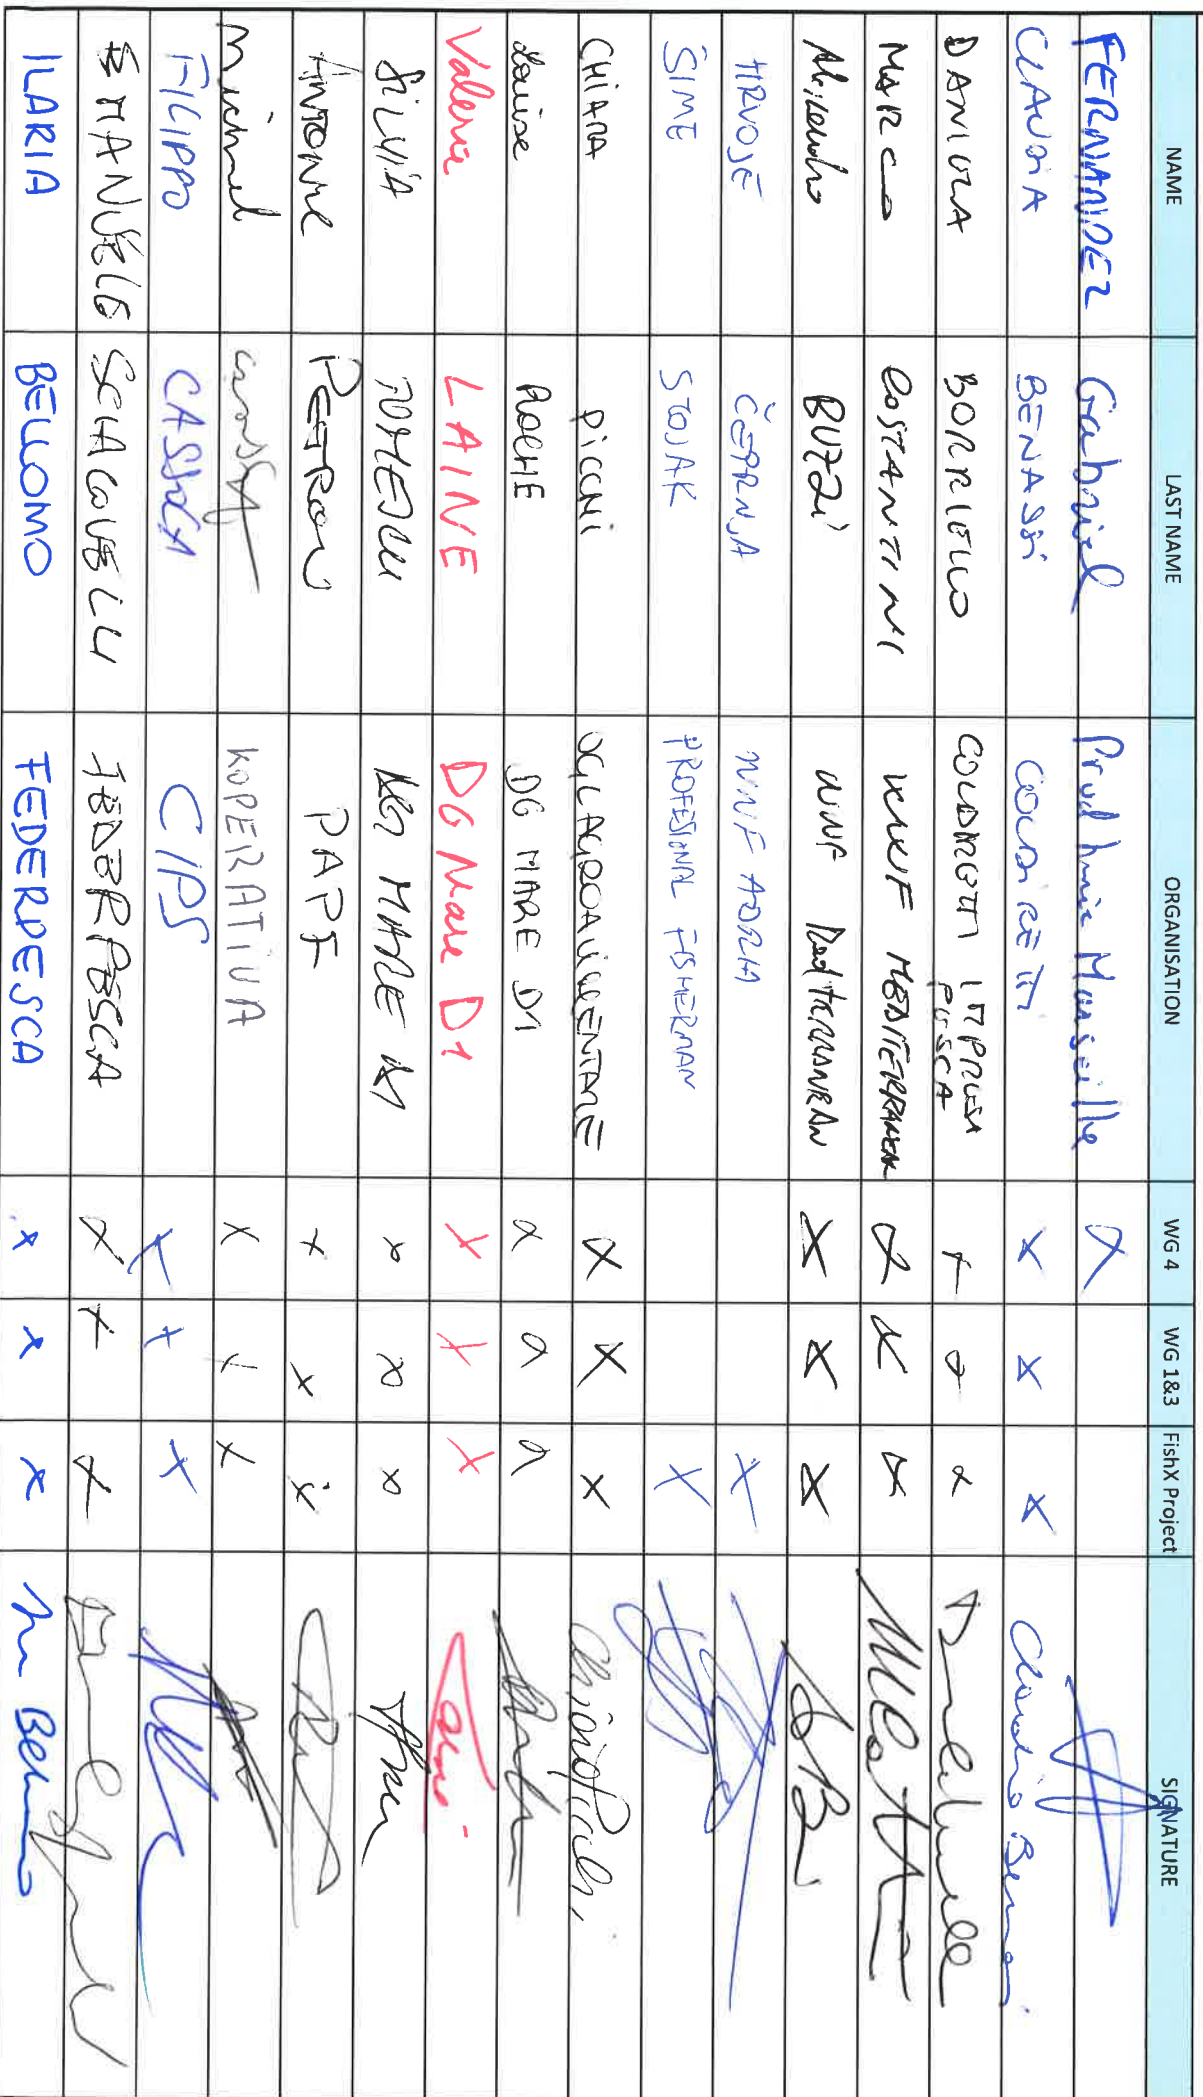 NAME LAST NAME ORGANISATION WG 4 WG 1&3 FishX Project SIGNATURE
FERNANDEZ Gabriel Prud'homie Marseille X
CLAUDIA BENASSI COLDIRETTI X X X Claudia Benassi
DANIELA BORRIELLO COLDIRETTI IMPRESA PESCA X X X
MARCO COSTANTINI WWF MEDITERRANEAN X X X
Alessandro BUZZI WWF MEDITERRANEAN X X X
HRVOJE ČEPRNJA WWF ADRIA X
ŠIME STOJAK PROFESIONAL FISHERMAN X
CHIARA PICCHI OGILAGROALIMENTARE X X X Chiara Picchi
Louise ROCHE DG MARE D1 X X X
Valerie LAINE DG Mare D1 X X X
SILVIA TOMESCU DG MARE D1 X X X
ANTOINE PETRON PAPF X X X
Michael KOPERATIVA X X X
FILIPPO CASSOLA CIPS X X X
EMANUELE SCIACOVELLI FEDERPESCA X X X
ILARIA BELLOMO FEDERPESCA X X X